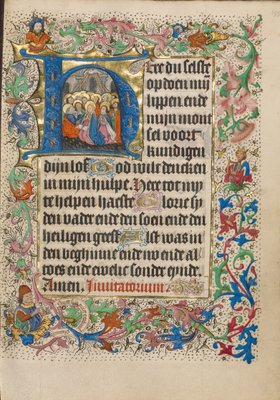 Here du selst
op doen mijn
lippen ende
mijn mont
sel voort
kundigen
dijn lof God wilt dencken
in mijn hulpe Here tot my
te helpen haeste Glorie sy
den vader ende den soen ende den
heiligen geest Alst was in
den beghinne ende nv ende al
toes ende ewelic sonder eynde.
Amen. Invitatorium